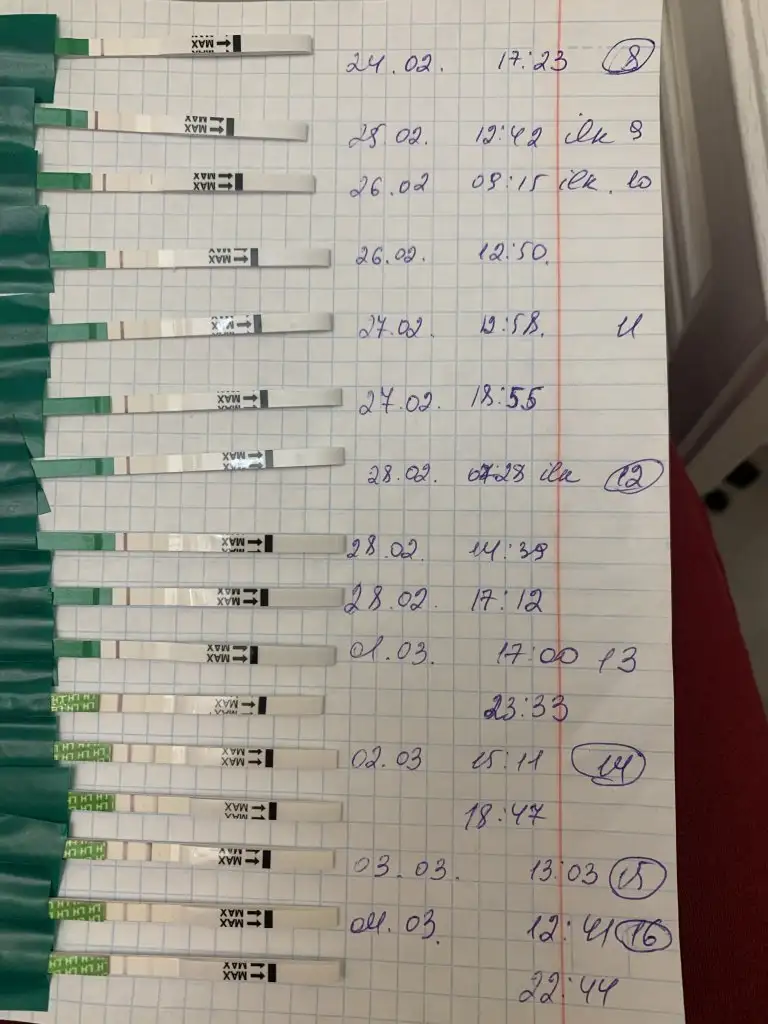 MAX 24.02. 17:23 8
MAX 25.02. 12:42 ilk 9
MAX 26.02 09:15 ilk. 10
MAX 26.02. 12:50.
27.02. 12:58. 11
MAX 27.02. 18:55
MAX 28.02. 07:28 ilk 12
MAX 28.02. 14:39
MAX 28.02. 17:12
MAX 01.03. 17:00 13
LH LH MAX 23:33
LH LH MAX 02.03 15:11 14
LH LH MAX 18:47
LH LH MAX 03.03. 13:03 15
LH LH MAX 04.03. 12:41 16
LH LH MAX 22:44